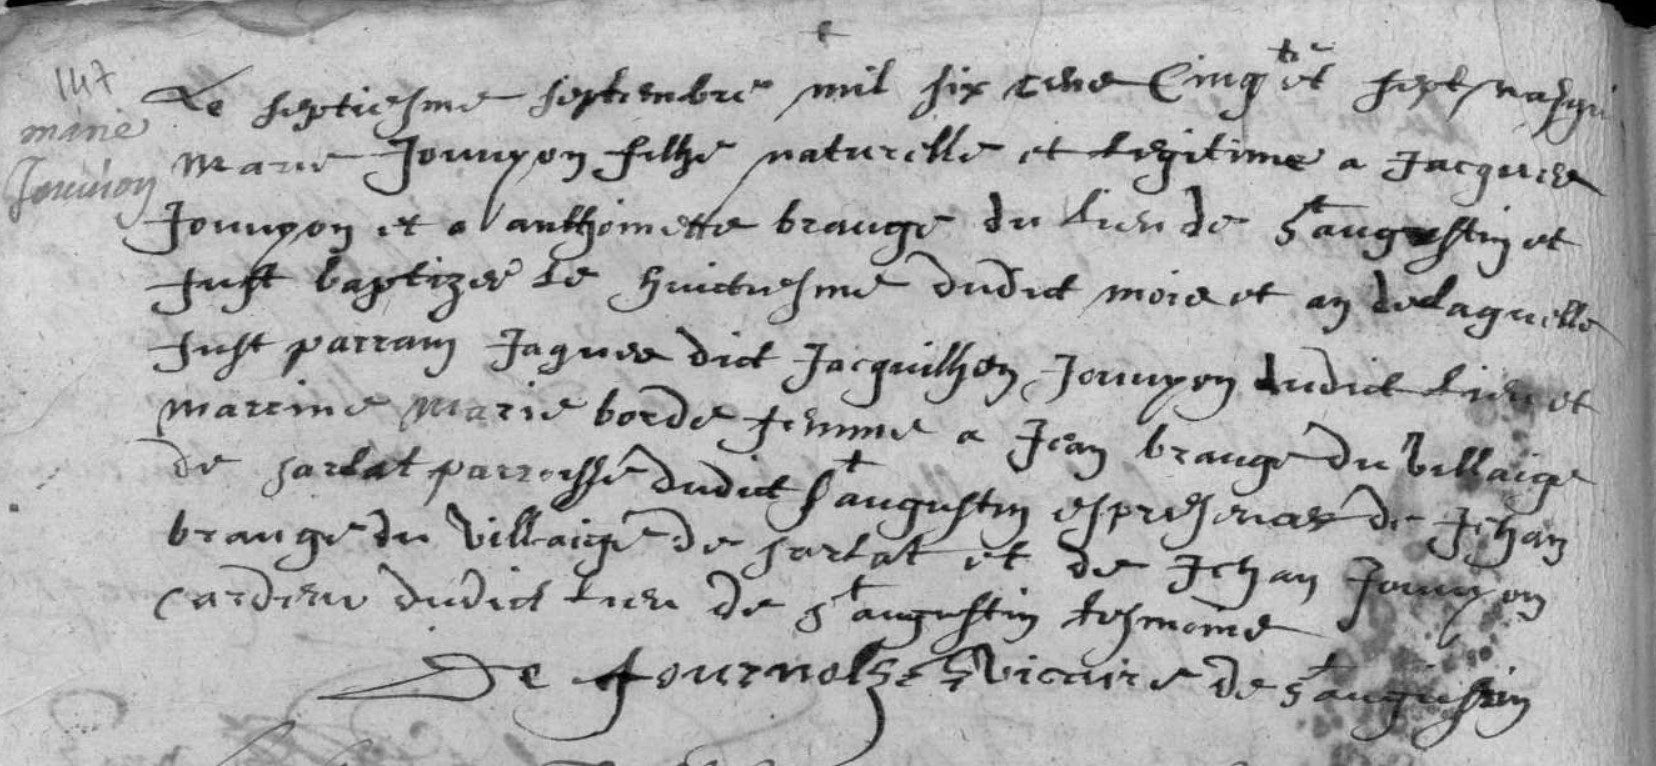 147
marie
Jouuion
Le septiesme septembre mil six cens Cinq^te et sept nasqui
Marie Jouuyon filhe naturelle et legitime a Jacques
Jouuyon et a anthoinette brauge du lieu de S^t augustin et
fust baptizee le huictiesme dudict mois et an de laquelle
fust parrain Jaques dict Jacquilhon Jouuyon dudict lieu et
marrine Marie borde femme a Jean brauge du villaige
de sarlat parroisse dudict S^t augustin es presences de Jehan
brauge du villaige de sarlat et de Jehan Jouuyon
dudict lieu de S^t augustin tesmoins
De fournolhs vicaire de S^t augustin